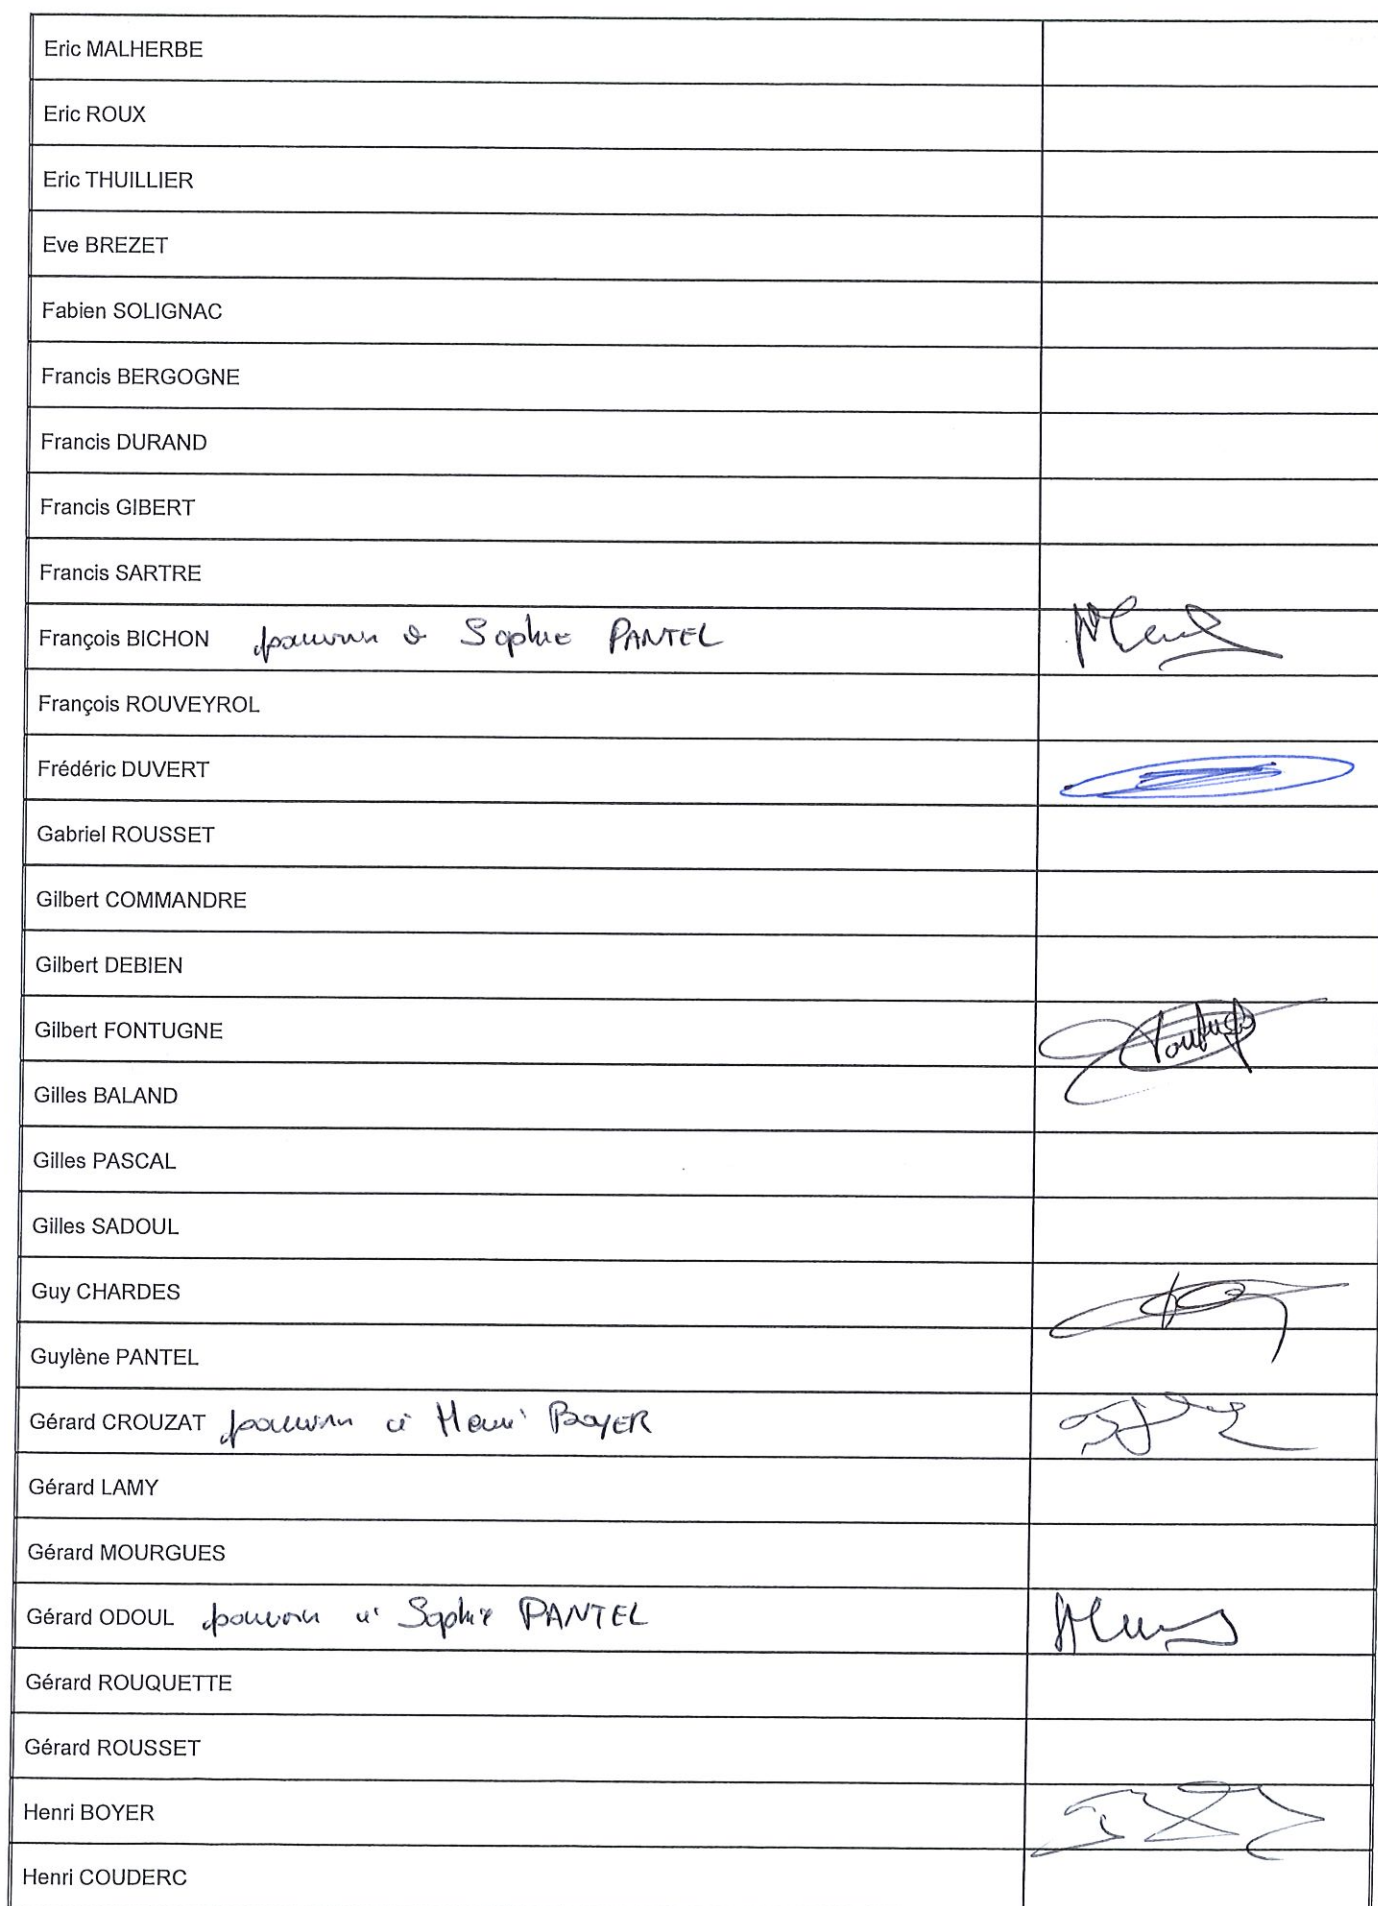 Eric MALHERBE
Eric ROUX
Eric THUILLIER
Eve BREZET
Fabien SOLIGNAC
Francis BERGOGNE
Francis DURAND
Francis GIBERT
Francis SARTRE
François BICHON pouvoir à Sophie PANTEL
François ROUVEYROL
Frédéric DUVERT
Gabriel ROUSSET
Gilbert COMMANDRE
Gilbert DEBIEN
Gilbert FONTUGNE
Gilles BALAND
Gilles PASCAL
Gilles SADOUL
Guy CHARDES
Guylène PANTEL
Gérard CROUZAT pouvoir à Henri BOYER
Gérard LAMY
Gérard MOURGUES
Gérard ODOUL pouvoir à Sophie PANTEL
Gérard ROUQUETTE
Gérard ROUSSET
Henri BOYER
Henri COUDERC